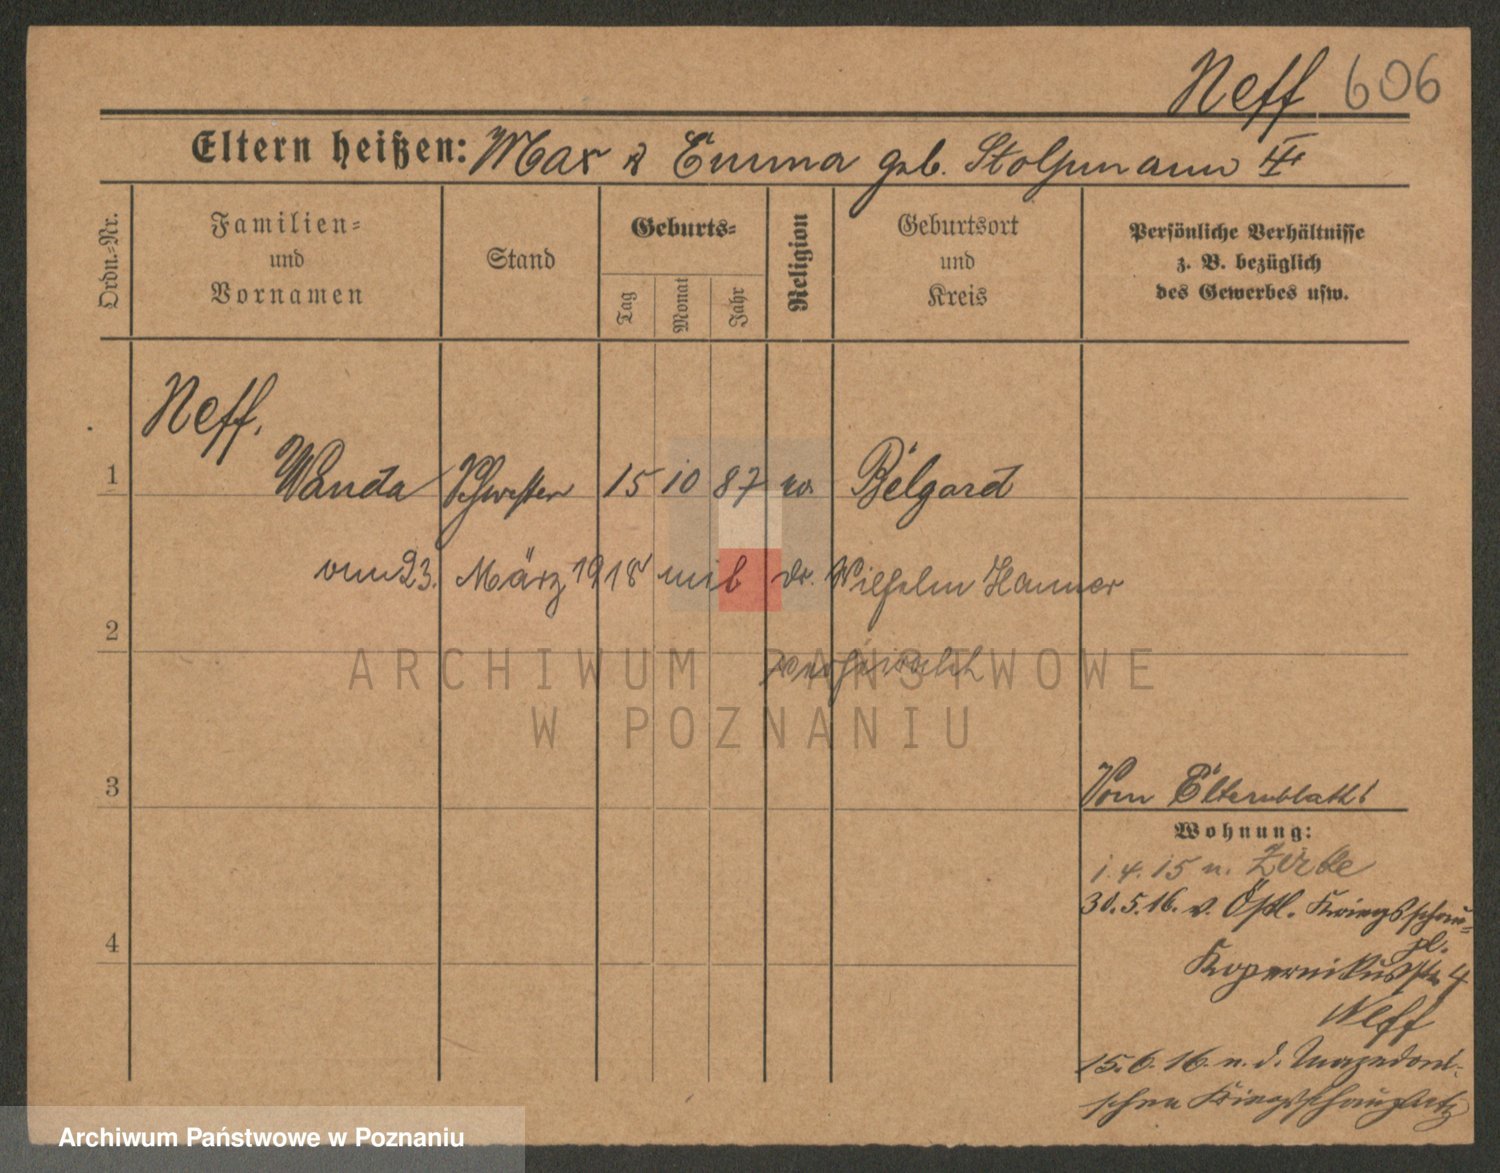 Neff 606
Eltern heißen: Max & Emma geb. Stolpmann
Ordn.-Nr.
Familien-
und
Vornamen
Stand
Geburts-
Tag
Monat
Jahr
Religion
Geburtsort
und
Kreis
Persönliche Verhältnisse
z. B. bezüglich
des Gewerbes usw.
Neff,
1 Wanda Schwester 15 10 87 Belgard
23. März 1918 mit dr. Wilhelm Hammer
2
verheiratet
3
Vom Elternblatt!
Wohnung:
1.4.15 n. Zirke
30.5.16. v. Östl. Kriegsschau-
pl.
4
Kopernikusstr. 4
Neff
15.6.16 n. d. Mazedoni-
schen Kriegsschauplatz
ARCHIWUM PAŃSTWOWE
W POZNANIU
Archiwum Państwowe w Poznaniu